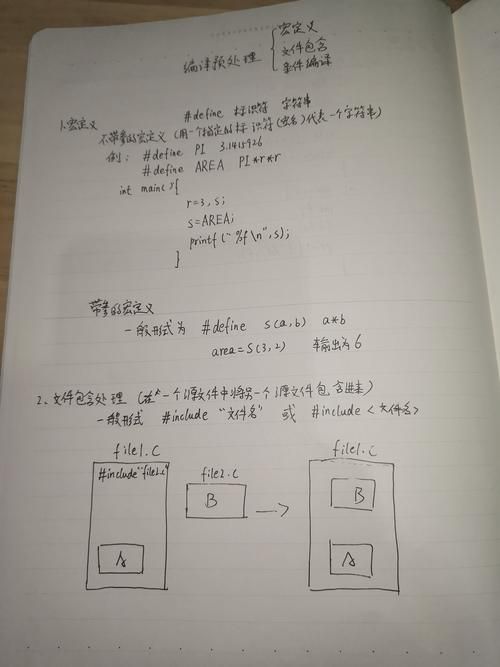 编译预处理 { 宏定义
文件包含
条件编译
1、宏定义
#define 标识符 字符串
不带参的宏定义 (用一个指定的标识符(宏名)代表一个字符串)
例: #define PI 3.1415926
#define AREA PI*r*r
int main(){
r=3, s;
s=AREA;
printf("%f\n",s);
}
带参的宏定义
一般形式为 #define S(a,b) a*b
area=S(3,2) 输出为6
2、文件包含处理 (在一个源文件中将另一个源文件包含进来)
一般形式 #include "文件名" 或 #include <文件名>
file1.c
#include"file2.c"
A
file2.c
B
→
file1.c
B
A